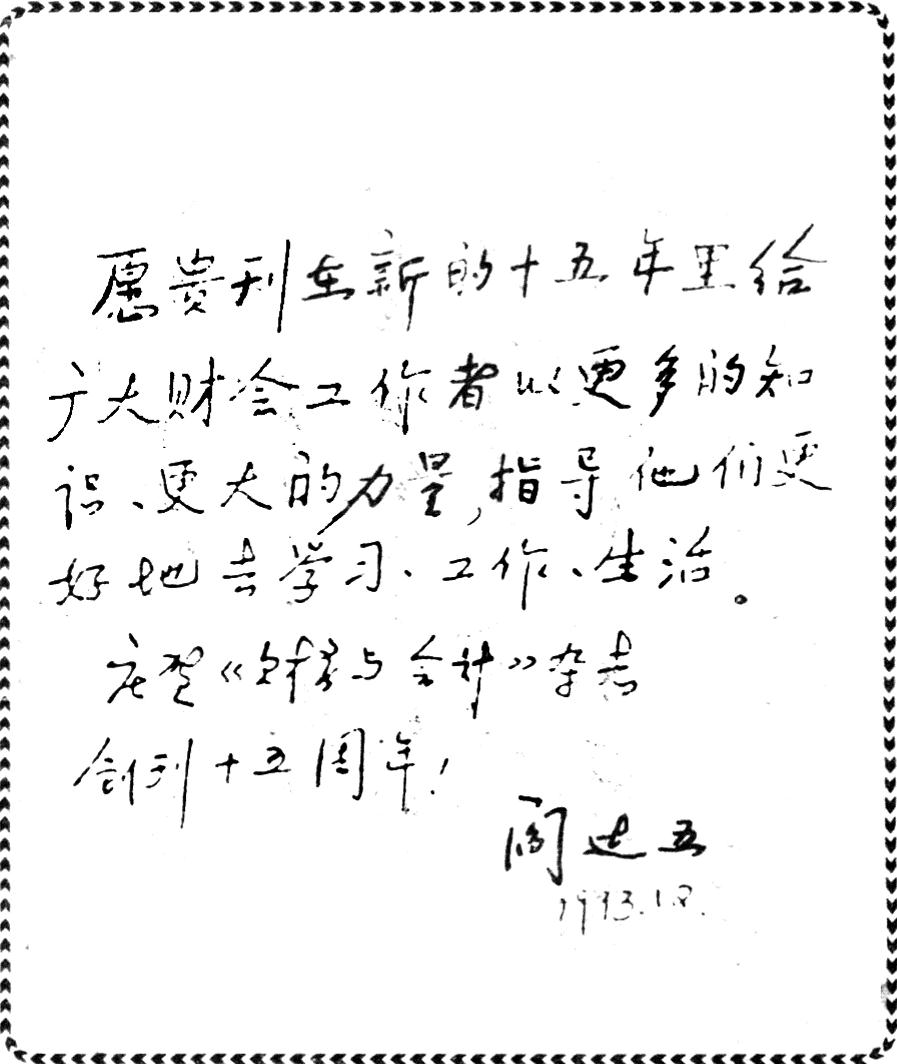 愿贵刊在新的十五年里给
广大财会工作者以更多的知
识、更大的力量,指导他们更
好地去学习、工作、生活。
庆贺《财务与会计》杂志
创刊十五周年!
阎达五
1993.1.8.